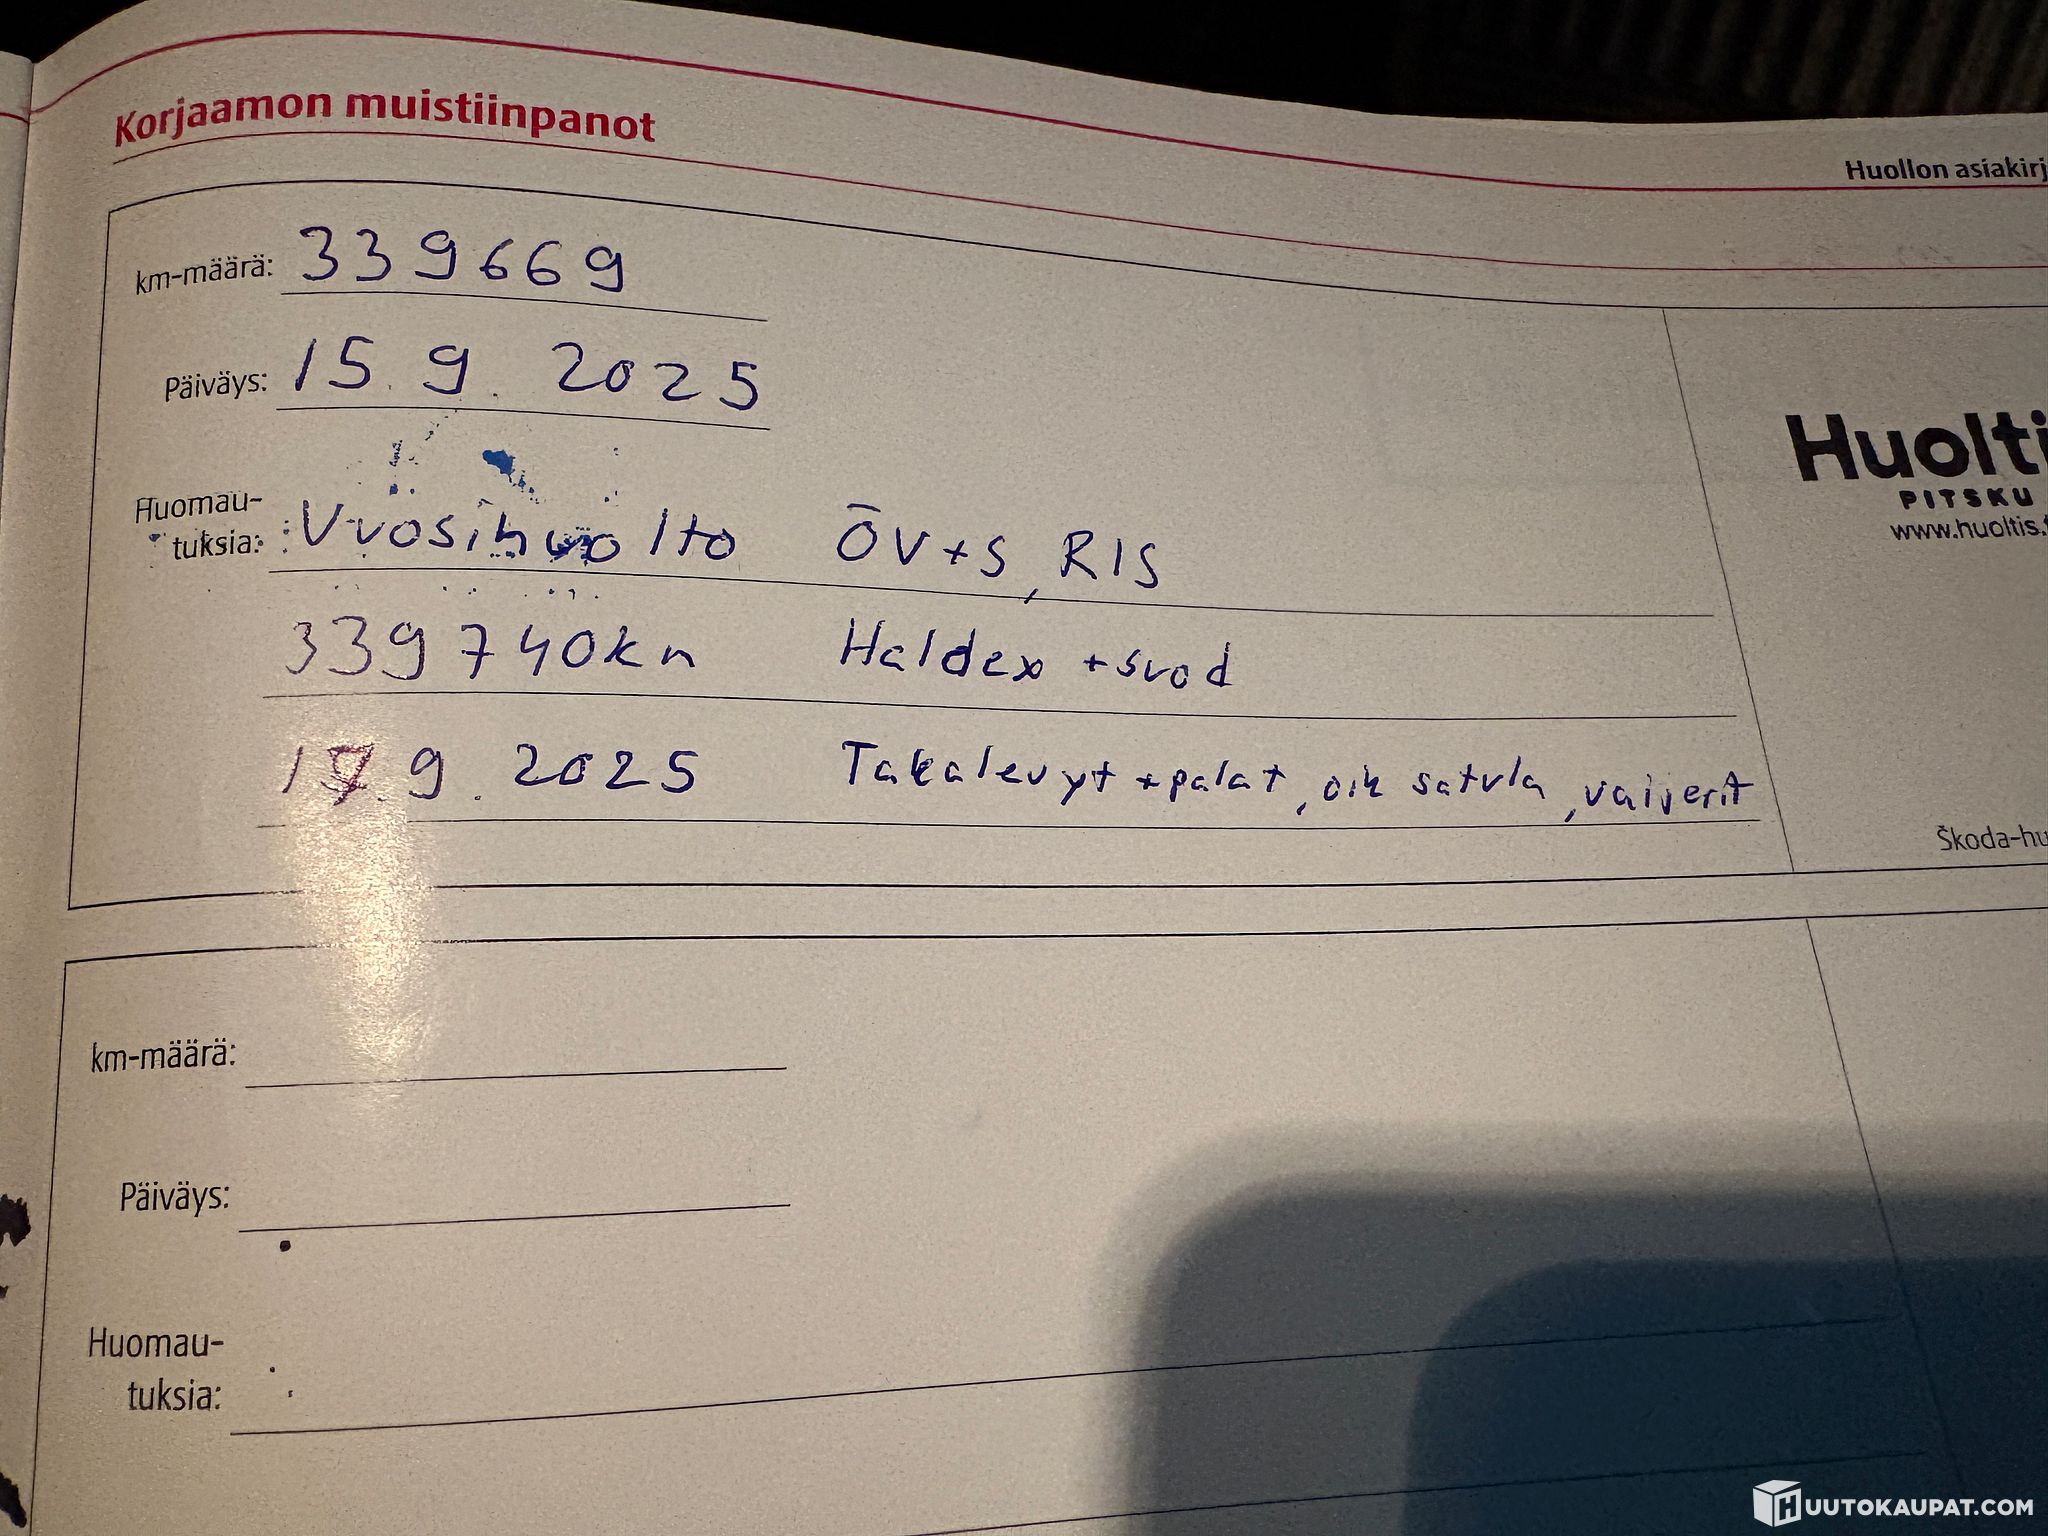 Korjaamon muistiinpanot
Huollon asiakirj
km-määrä: 339669
Päiväys: 15.9.2025
Huolti
PITSKU
www.huoltis.f
Huomau-
tuksia: Vuosihuolto ÖV+S, RIS
339740km Haldex +suod
9.2025 Takalevyt +palat, oik satula, vaijerit
Škoda-hu
km-määrä:
Päiväys:
Huomau-
tuksia:
HUUTOKAUPAT.COM